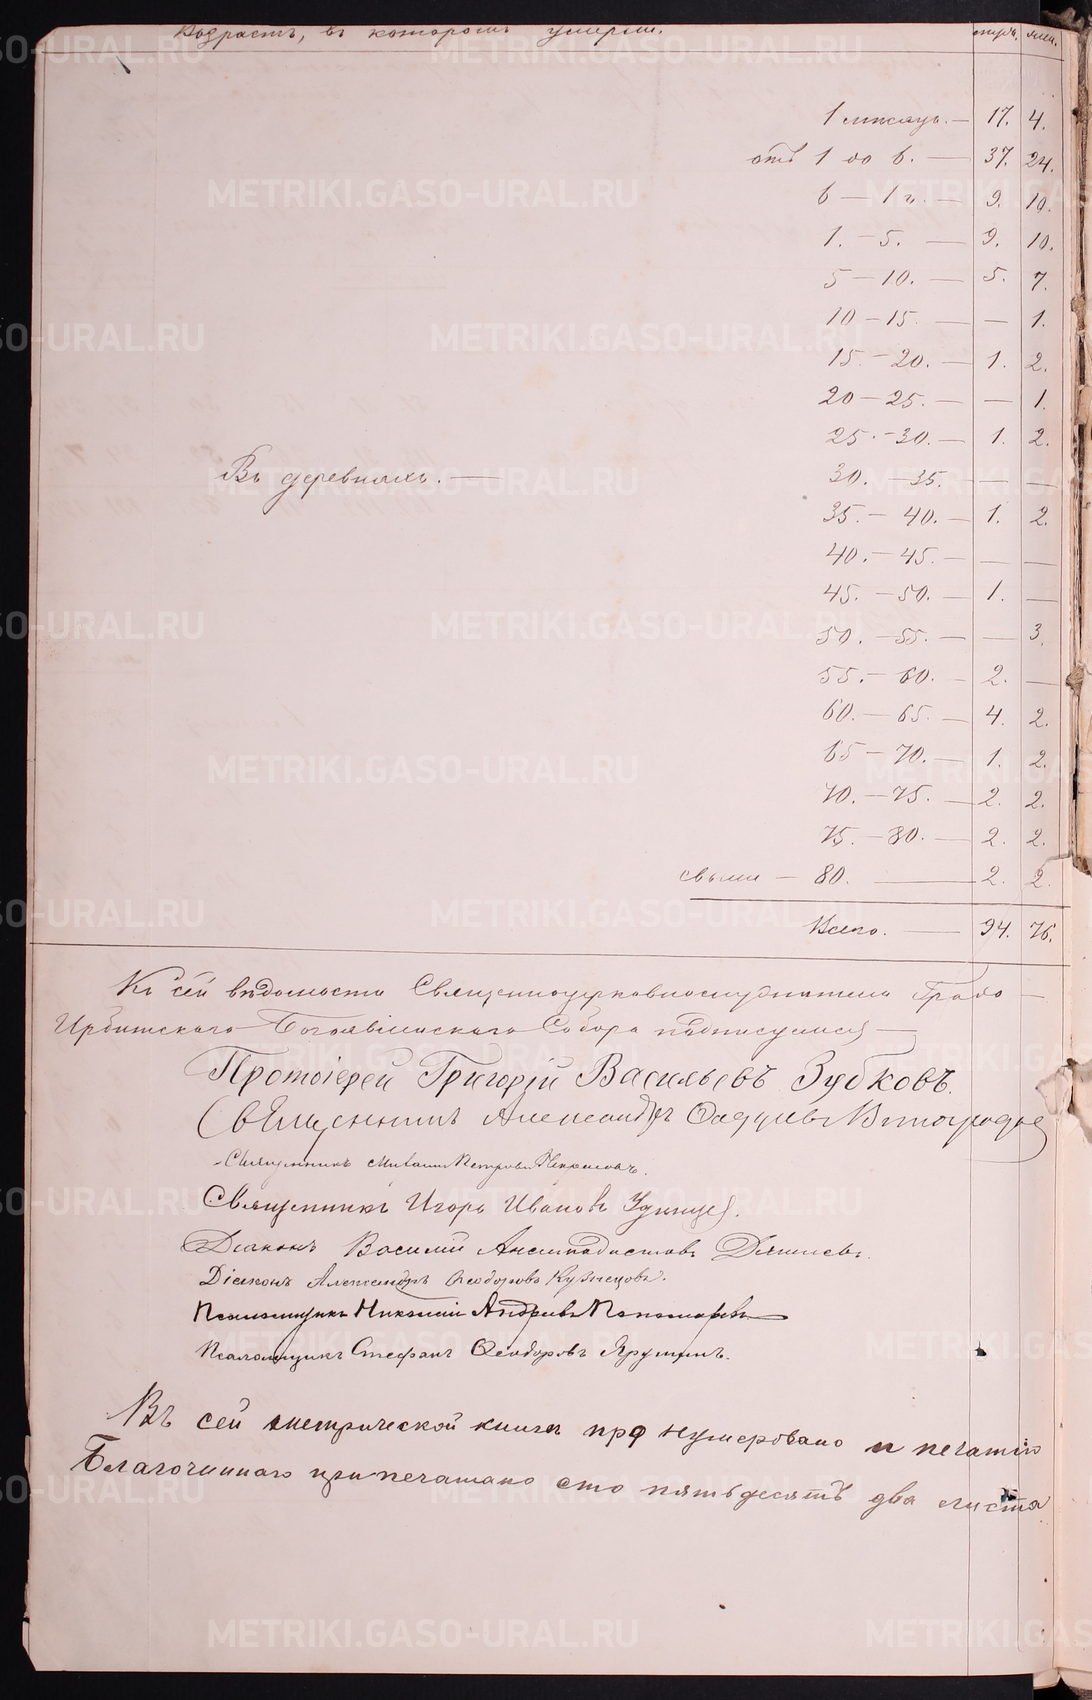 Возрастъ, въ которомъ умерли. муж. жен.
1 мѣсяцъ. — 17. 4.
отъ 1 до 6. — 37. 24.
6 — 1 г. — 9. 10.
1. — 5. — 9. 10.
5 — 10. — 5. 7.
10 — 15. — — 1.
15. — 20. — 1. 2.
20 — 25. — — 1.
25. — 30. — 1. 2.
Въ деревняхъ. —
30. — 35. — — —
35. — 40. — 1. 2.
40. — 45. — — —
45. — 50. — 1. —
50. — 55. — — 3.
55. — 60. — 2. —
60. — 65. — 4. 2.
65 — 70. — 1. 2.
70. — 75. — 2. 2.
75. — 80. — 2. 2.
свыше — 80. — 2. 2.
Всего. — 94. 76.
Къ сей вѣдомости Священноцерковнослужители Градо-
Ирбитскаго Богоявленскаго Собора подписуемся
Протоіерей Григорій Васильевъ Зубковъ.
Священникъ Александръ Виноградов
Священникъ Михаилъ Петровъ Некрасовъ.
Священникъ Игорь Ивановъ Удинцев.
Діаконъ Василий
Діаконъ Александръ Ѳеодоровъ Кузнецовъ.
Псаломщикъ Николай Андреевъ Пономаревъ
Псаломщикъ Стефанъ Ѳеодоровъ Ярушинъ.
Въ сей метрической книгѣ пронумеровано и печатію
Благочиннаго припечатано сто пятьдесятъ два листа
METRIKI.GASO-URAL.RU